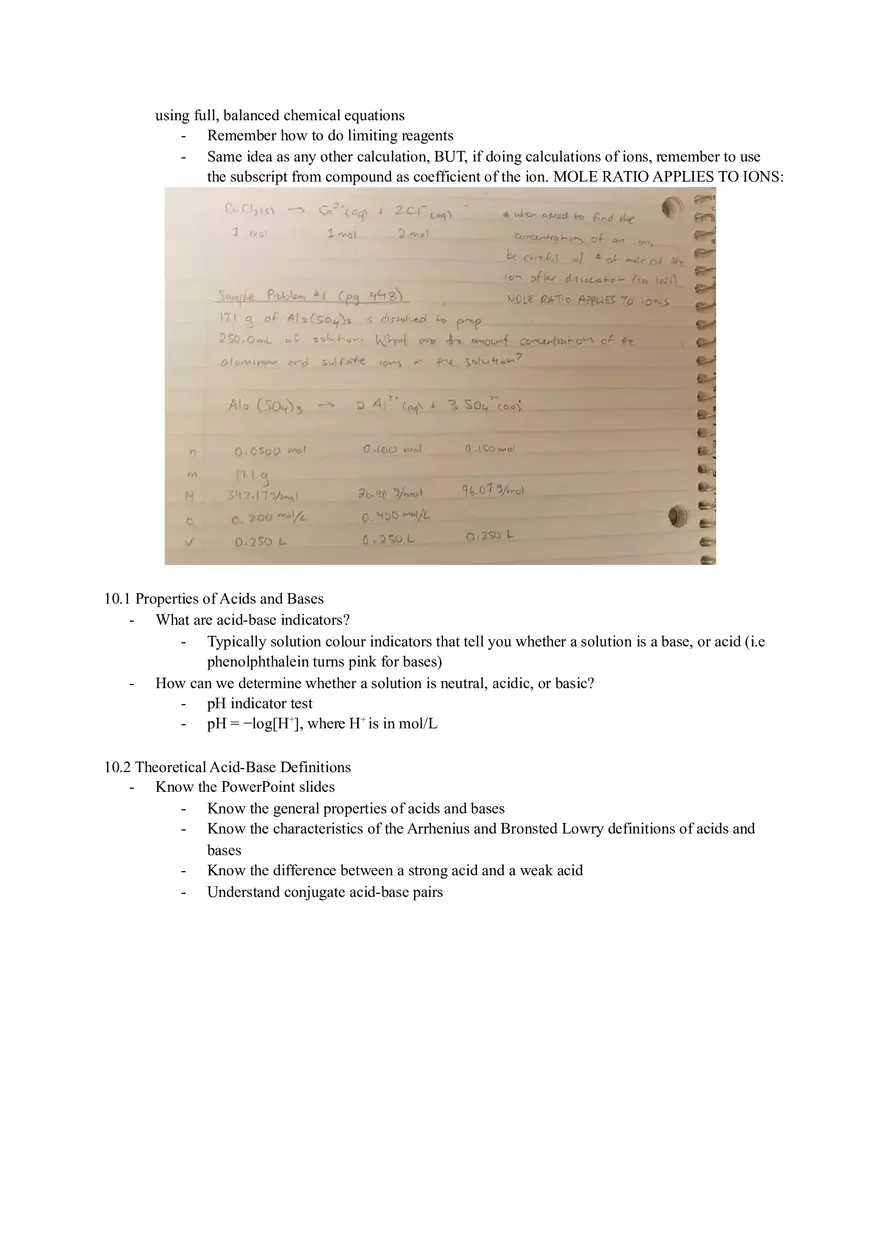 using full, balanced chemical equations
- Remember how to do limiting reagents
- Same idea as any other calculation, BUT, if doing calculations of ions, remember to use
the subscript from compound as coefficient of the ion. MOLE RATIO APPLIES TO IONS:
CaCl₂(s) → Ca²⁺(aq) + 2Cl⁻(aq)
1 mol 1 mol 2 mol
* when asked to find the
concentration of an ion,
be careful w/ # of moles of the
ion after dissociation (see left)
MOLE RATIO APPLIES TO IONS
Sample Problem #1 (pg 448)
17.1 g of Al₂(SO₄)₃ is dissolved to prep
250.0mL of solution. What are the amount concentrations of the
aluminum and sulfate ions in the solution?
Al₂(SO₄)₃ → 2 Al³⁺(aq) + 3 SO₄²⁻(aq)
n 0.0500 mol 0.100 mol 0.150 mol
m 17.1 g
M 342.17 g/mol 26.98 g/mol 96.07 g/mol
c 0.200 mol/L 0.400 mol/L
v 0.250 L 0.250 L 0.250 L
10.1 Properties of Acids and Bases
- What are acid-base indicators?
- Typically solution colour indicators that tell you whether a solution is a base, or acid (i.e
phenolphthalein turns pink for bases)
- How can we determine whether a solution is neutral, acidic, or basic?
- pH indicator test
- pH = −log[H⁺], where H⁺ is in mol/L
10.2 Theoretical Acid-Base Definitions
- Know the PowerPoint slides
- Know the general properties of acids and bases
- Know the characteristics of the Arrhenius and Bronsted Lowry definitions of acids and
bases
- Know the difference between a strong acid and a weak acid
- Understand conjugate acid-base pairs